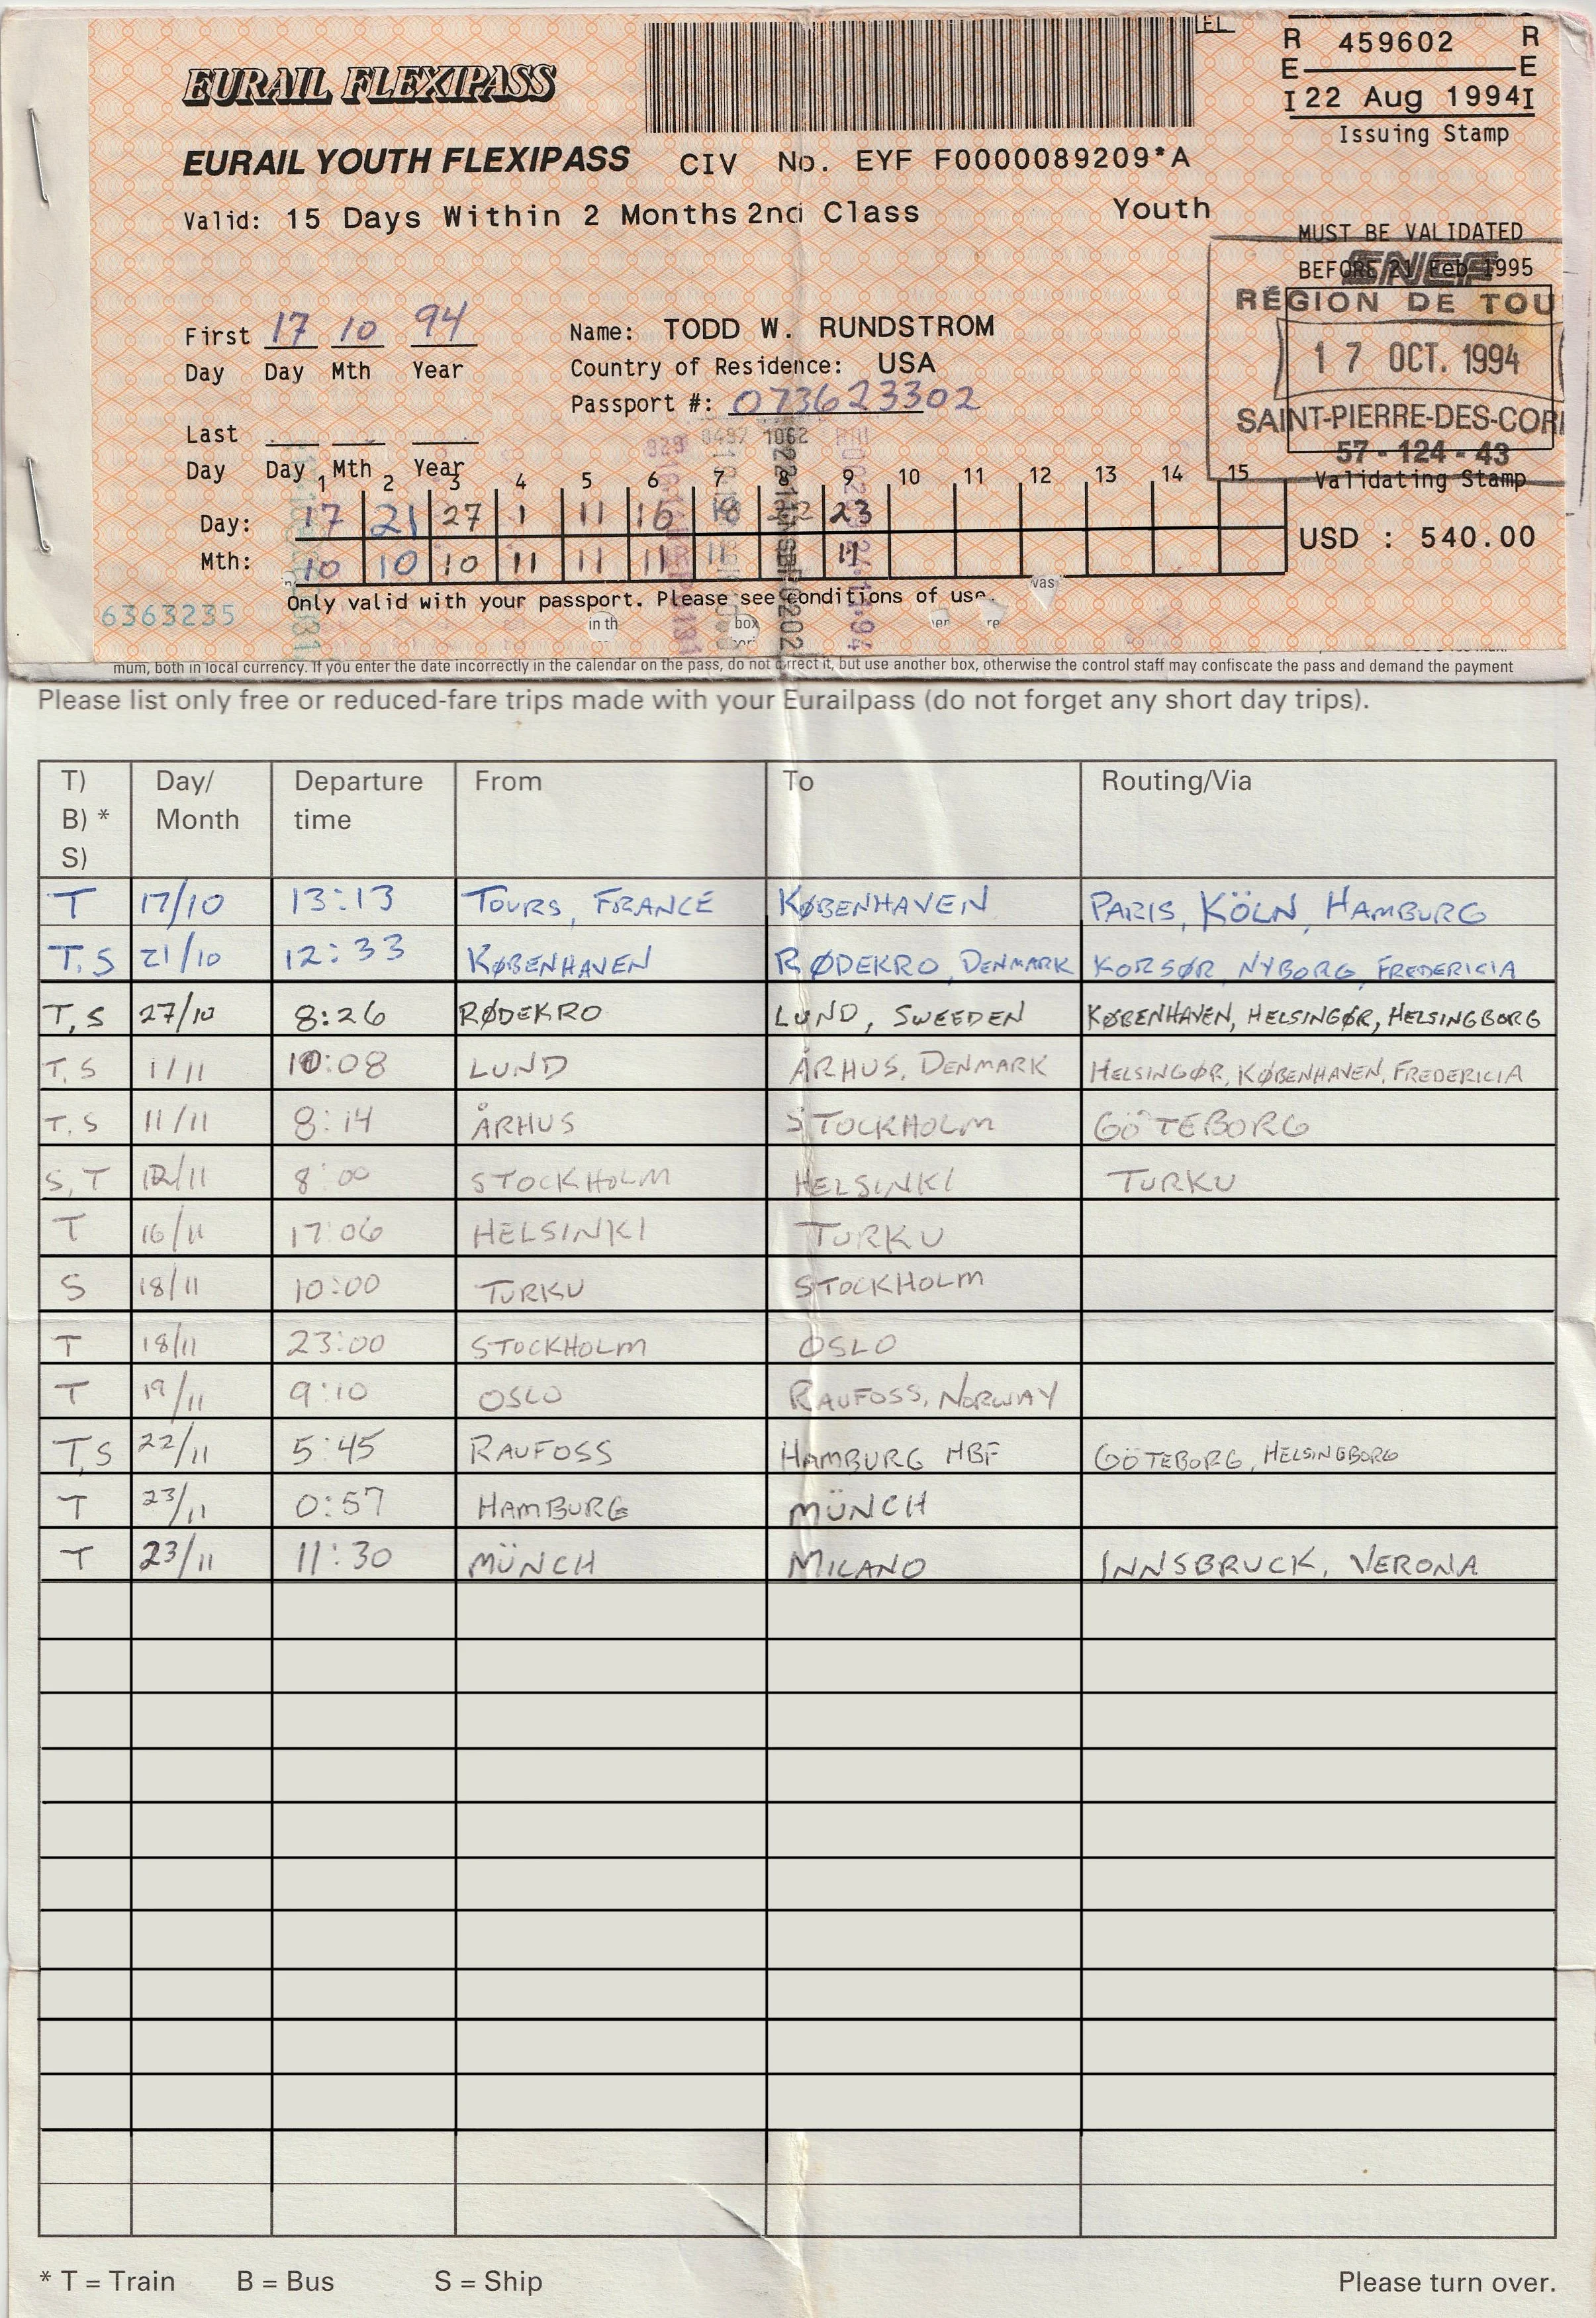 EURAIL FLEXIPASS
EL
R 459602 R
E E
I 22 Aug 1994 I
Issuing Stamp
EURAIL YOUTH FLEXIPASS CIV No. EYF F0000089209*A
Valid: 15 Days Within 2 Months 2nd Class Youth
MUST BE VALIDATED
BEFORE 21 Feb 1995
SNCF
RÉGION DE TOU
17 OCT. 1994
SAINT-PIERRE-DES-COR
57-124-43
Validating Stamp
First 17 10 94
Day Day Mth Year
Name: TODD W. RUNDSTROM
Country of Residence: USA
Passport #: 073623302
Last
Day Day Mth Year
0497 1062
1 2 3 4 5 6 7 8 9 10 11 12 13 14 15
Day: 17 21 27 1 11 16 18 22 23
Mth: 10 10 10 11 11 11 11 11
USD : 540.00
Only valid with your passport. Please see conditions of use.
6363235
in th box en re vas
mum, both in local currency. If you enter the date incorrectly in the calendar on the pass, do not correct it, but use another box, otherwise the control staff may confiscate the pass and demand the payment
Please list only free or reduced-fare trips made with your Eurailpass (do not forget any short day trips).
T) Day/ Departure From To Routing/Via
B) * Month time
S)
T 17/10 13:13 TOURS, FRANCE KØBENHAVEN PARIS, KÖLN, HAMBURG
T, S 21/10 12:33 KØBENHAVEN RØDEKRO, DENMARK KORSØR, NYBORG, FREDERICIA
T, S 27/10 8:26 RØDEKRO LUND, SWEEDEN KØBENHAVEN, HELSINGØR, HELSINGBORG
T, S 1/11 10:08 LUND ÅRHUS, DENMARK HELSINGØR, KØBENHAVEN, FREDERICIA
T, S 11/11 8:14 ÅRHUS STOCKHOLM GÖTEBORG
S, T 12/11 8:00 STOCKHOLM HELSINKI TURKU
T 16/11 17:06 HELSINKI TURKU
S 18/11 10:00 TURKU STOCKHOLM
T 18/11 23:00 STOCKHOLM OSLO
T 19/11 9:10 OSLO RAUFOSS, NORWAY
T, S 22/11 5:45 RAUFOSS HAMBURG HBF GÖTEBORG, HELSINGBORG
T 23/11 0:57 HAMBURG MÜNCH
T 23/11 11:30 MÜNCH MILANO INNSBRUCK, VERONA
* T = Train B = Bus S = Ship Please turn over.